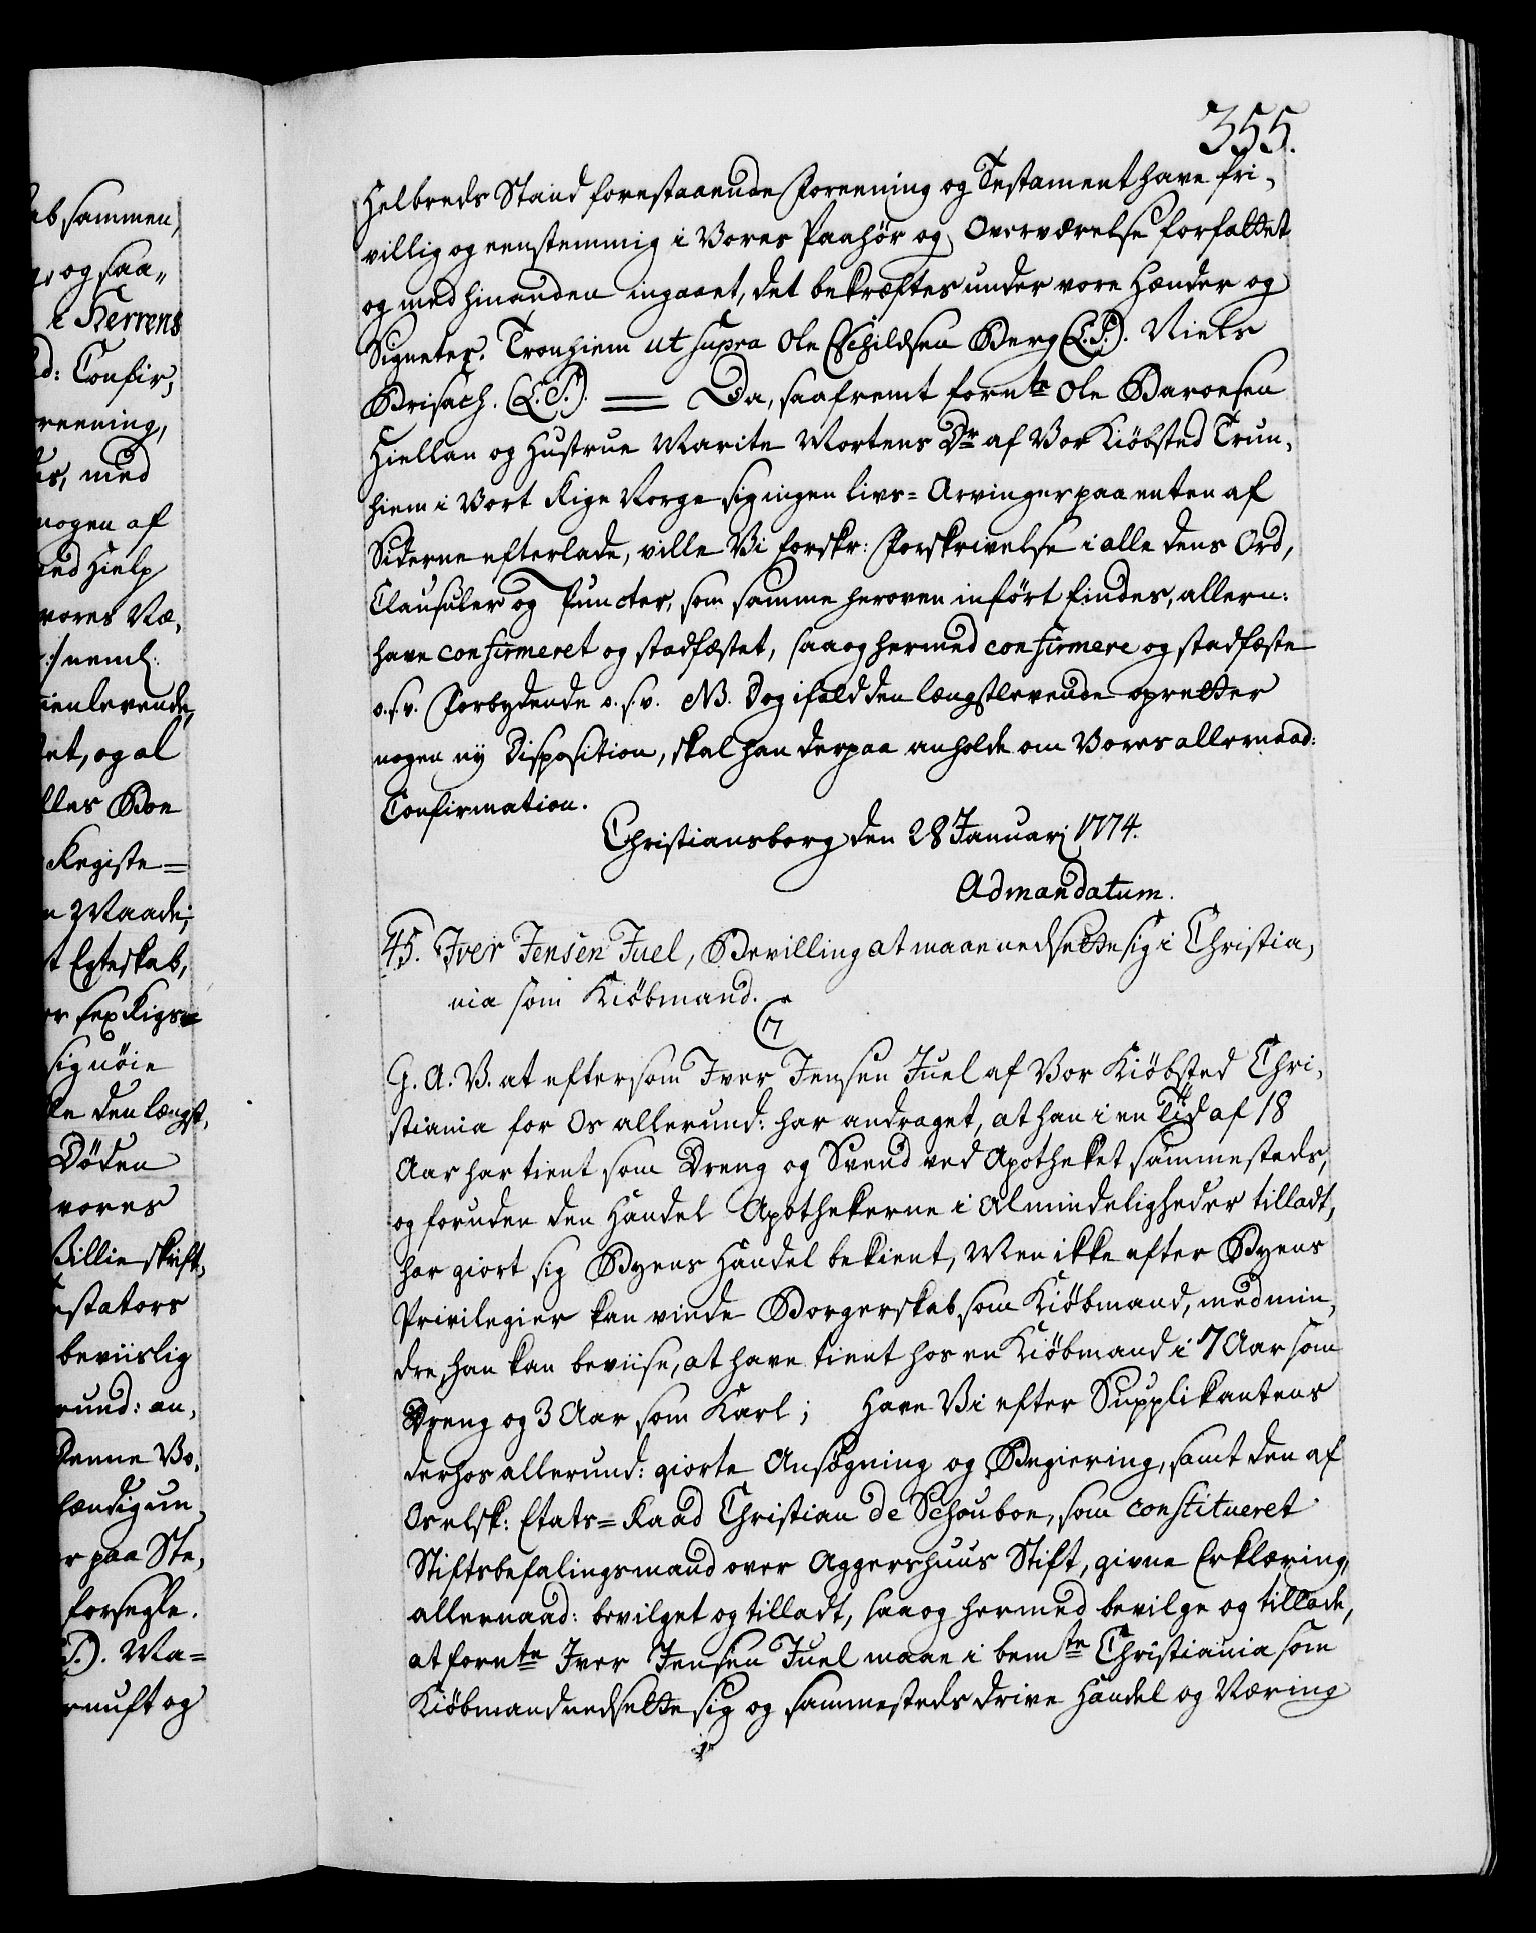 ab sammen,
og saa„
i Herrens
d: Confir,
reening,
med
nogen af
ed Hielp
vores Næ,
:/ neml:
ienlevende,
et, og al
lles Boe
Registe=
n Maade;
t Egteskab,
er sex Rigs=
sig nöie
le den længst,
Döden
vores
Billie skrift,
estators
beviislig
rund: an,
Denne Vo,
lændig un
r paa Ste,
forsegle.
S.). Ma=
rnuft og
355.
Helbreds Stand forestaaende Foreening og Testament have fri,
villig og eenstemmig i Vores Paahör og Overværelse forfattet
og med hinanden ingaaet, det bekræftes under vore Hænder og
Signeter. Tronhiem ut supra Ole Eschildsen Berg (L.S.). Niels
Brisach. (L.S.). = Da, saafremt fornte Ole Baroesen
Hiellan og Hustrue Marite Mortens Dr af Vor Kiöbsted Trun,
hiem i Vort Rige Norge sig ingen livs=Arvinger paa enten af
Siderne efterlade, ville Vi forskr: Forskrivelse i alle dens Ord,
Clausuler og Puncter, som samme heroven infört findes, allern:
have confirmeret og stadfæstet, saa og hermed confirmere og stadfæste
o.s.v. Forbydende o.s.v. NB. Dog ifald den længstlevende opretter
nogen ny Disposition, skal han derpaa anholde om Vores allernaad:
Confirmation.
Christiansborg den 28 Januarj 1774.
Ad mandatum.
45. Iver Jensen Juel, Bevilling at maae nedsette sig i Christia,
nia som Kiöbmand.
C7
G. A. V. at eftersom Iver Jensen Juel af Vor Kiöbsted Chri,
stiania for Os allerund: har andraget, at han i en Tid af 18
Aar har tient som Dreng og Svend ved Apotheket sammesteds,
og foruden den Handel Apothekerne i Almindeligheder tilladt,
har giort sig Byens Handel bekient, Men ikke efter Byens
Privilegier kan vinde Borgerskab som Kiöbmand, med min,
dre, han kan beviise, at have tient hos en Kiöbmand i 7 Aar som
Dreng og 3 Aar som Karl; Have Vi efter Supplikantens
derhos allerund: giorte Ansögning og Begiering, samt den af
Os elsk: Etats=Raad Christian de Schouboe, som constitueret
Stiftsbefalingsmand over Aggershuus Stift, givne Erklæring,
allernaad: bevilget og tilladt, saa og hermed bevilge og tillade,
at fornte Iver Jensen Juel maae i bemte Christiania som
Kiöbmand nedsette sig og sammesteds drive Handel og Næring